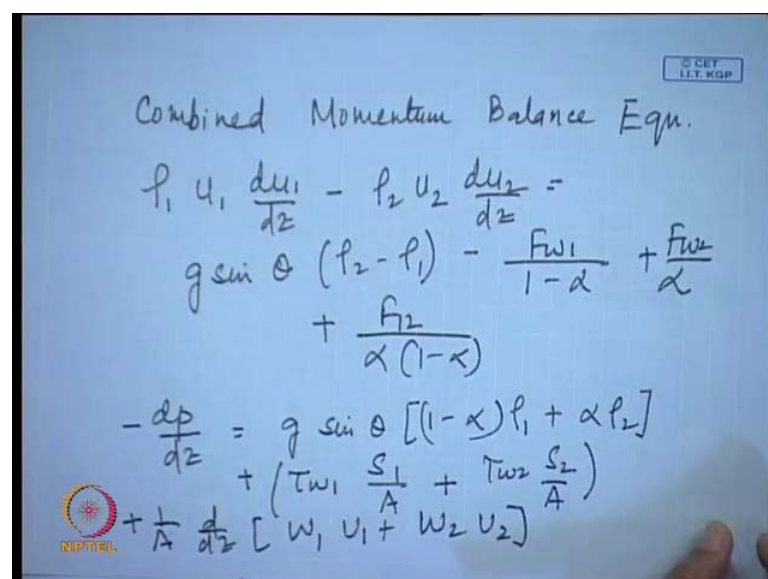 © CET
I.I.T. KGP
Combined Momentum Balance Equn.
ρ₁ u₁ du₁/dz - ρ₂ u₂ du₂/dz =
g sin θ (ρ₂ - ρ₁) - Fw₁/(1-α) + Fw₂/α
+ F₁₂/(α (1-α))
- dp/dz = g sin θ [(1-α)ρ₁ + αρ₂]
+ (τw₁ S₁/A + τw₂ S₂/A)
+ 1/A d/dz [W₁ U₁ + W₂ U₂]
NPTEL